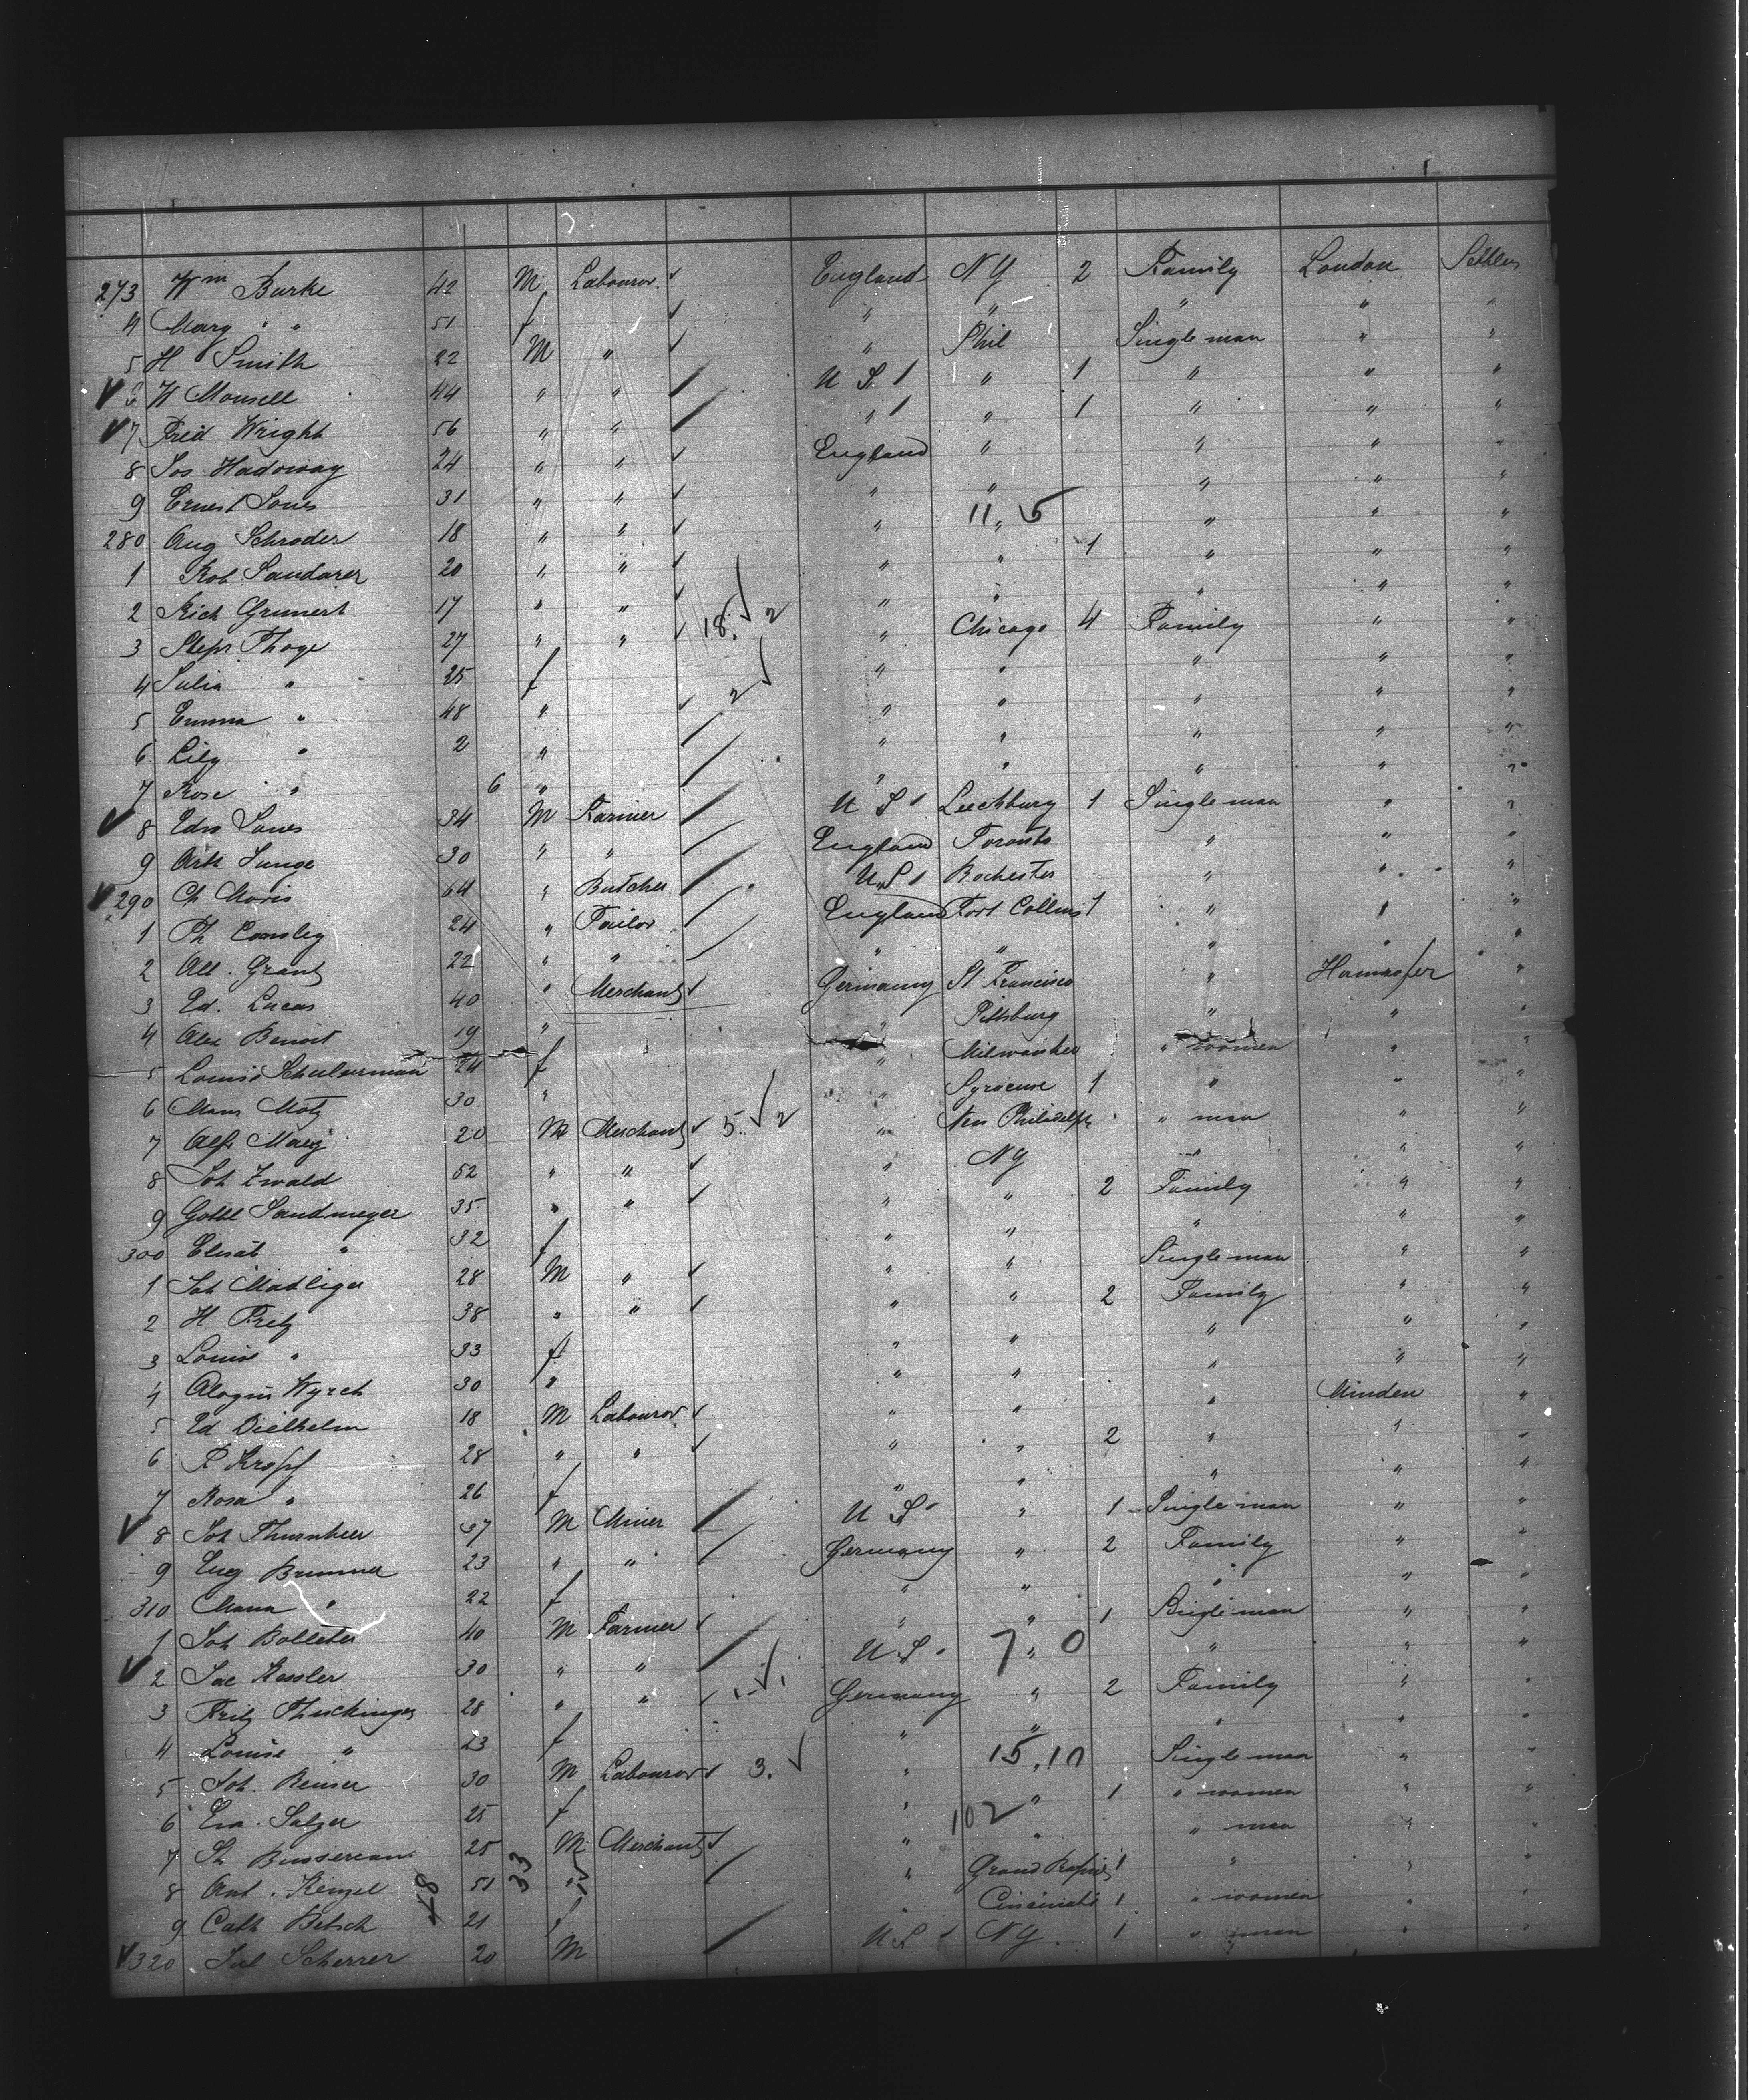 273 Wm Burke 42 M Labouror England NY 2 Family London Settler
4 Mary " " 51 f " " " " "
5 H Smith 22 M " " Phil Single man " "
6 W Mousell 44 " " U S 1 " 1 " " "
7 Fred Wright 56 " " " 1 " 1 " " "
8 Jos Hadoway 24 " " England " " " "
9 Ernest Jones 31 " " " " " " "
280 Aug Schroder 18 " " " " 11, 5 " " "
1 Rob 20 " " " " 1 " " "
2 Rich Grunert 17 " " " " " " "
3 Thoge 27 " " 18. 2 " Chicago 4 Family " "
4 Julia " 25 f " " " " "
5 Emma " 48 " 2 " " " " "
6 Lily " 2 " " " " " "
7 Rose " 6 " " " " " "
8 Edw Jones 34 M Farmer U S 1 Leechburg 1 Single man " "
9 Arth 30 " " England Toronto " " "
290 Ch Moris 64 " Butcher U S 1 Rochester " " "
1 Ph 24 " Tailor England Fort Collins 1 " " "
2 Alb. Grant 22 " " " " " " "
3 Ed. Lucas 40 " Merchant Germany St Francisco " "
4 Alex Benoit 19 " " Pittsburg " " "
5 Louise 24 f " Milwaukee " women " "
6 Motz 30 " " Syracuse 1 " " "
7 Alf 20 M Merchant 5. 2 " New Philadelph " man " "
8 Joh Zwald 52 " " " NY " " "
9 Gottl Sandmeyer 35 " " " " 2 Family " "
300 Elisab " 32 f " " " " "
1 Joh Madliger 28 M " " " Single man " "
2 H Fretz 38 " " " " 2 Family " "
3 Louise " 33 f " " " " "
4 30 " " " " " "
5 Ed Diethelm 18 M Labouror " " " Minden "
6 R Kropf 28 " " " " 2 " " "
7 Rosa " 26 f " " " " "
8 Joh Thurnheer 37 M Miner U S " 1 Single man " "
9 Eug Brunner 23 " " Germany " 2 Family " "
310 Maria " 22 f " " " " "
1 Joh Bolleter 40 M Farmer " " 1 Single man " "
2 Jac Kessler 30 " " U S " 7 0 " " "
3 Fritz 28 " " 1 1 Germany " 2 Family " "
4 Louise " 23 f " " " " "
5 Joh. Reuser 30 M Labouror 3. " 15.10 Single man " "
6 Eva. Salzer 25 f " " 1 " women " "
7 25 M Merchant " " 102 " man " "
8 Ant. Kenzel 51 " " Grand Rapids 1 " " "
48 33
9 Cath Betsch 21 f " Cincinnati 1 " women " "
320 Jul Scherrer 20 M U S 1 NY 1 " man " "